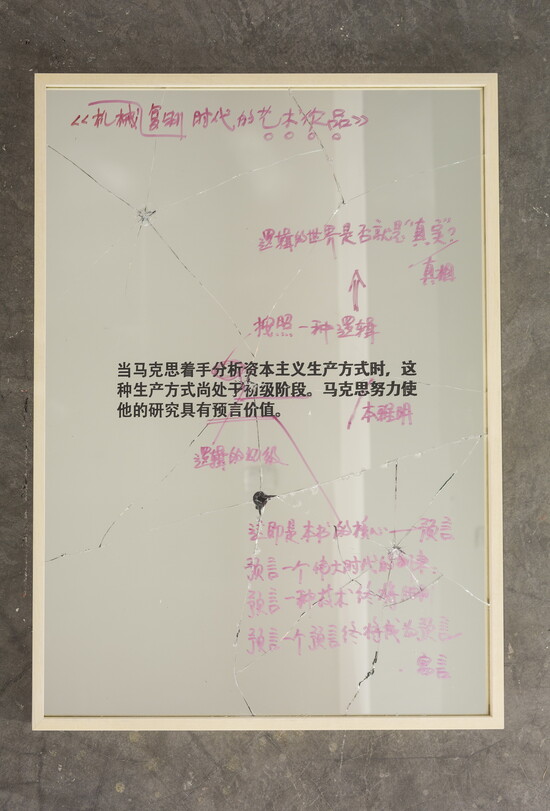 《机械复制时代的艺术作品》
逻辑的世界是否就是“真实”？
真相
按照一种逻辑
当马克思着手分析资本主义生产方式时，这
种生产方式尚处于初级阶段。马克思努力使
他的研究具有预言价值。
本雅明
逻辑的
是本书的核心——预言
预言一个伟大时代的
预言一种技术终将
预言一个预言终将成为预言
寓言